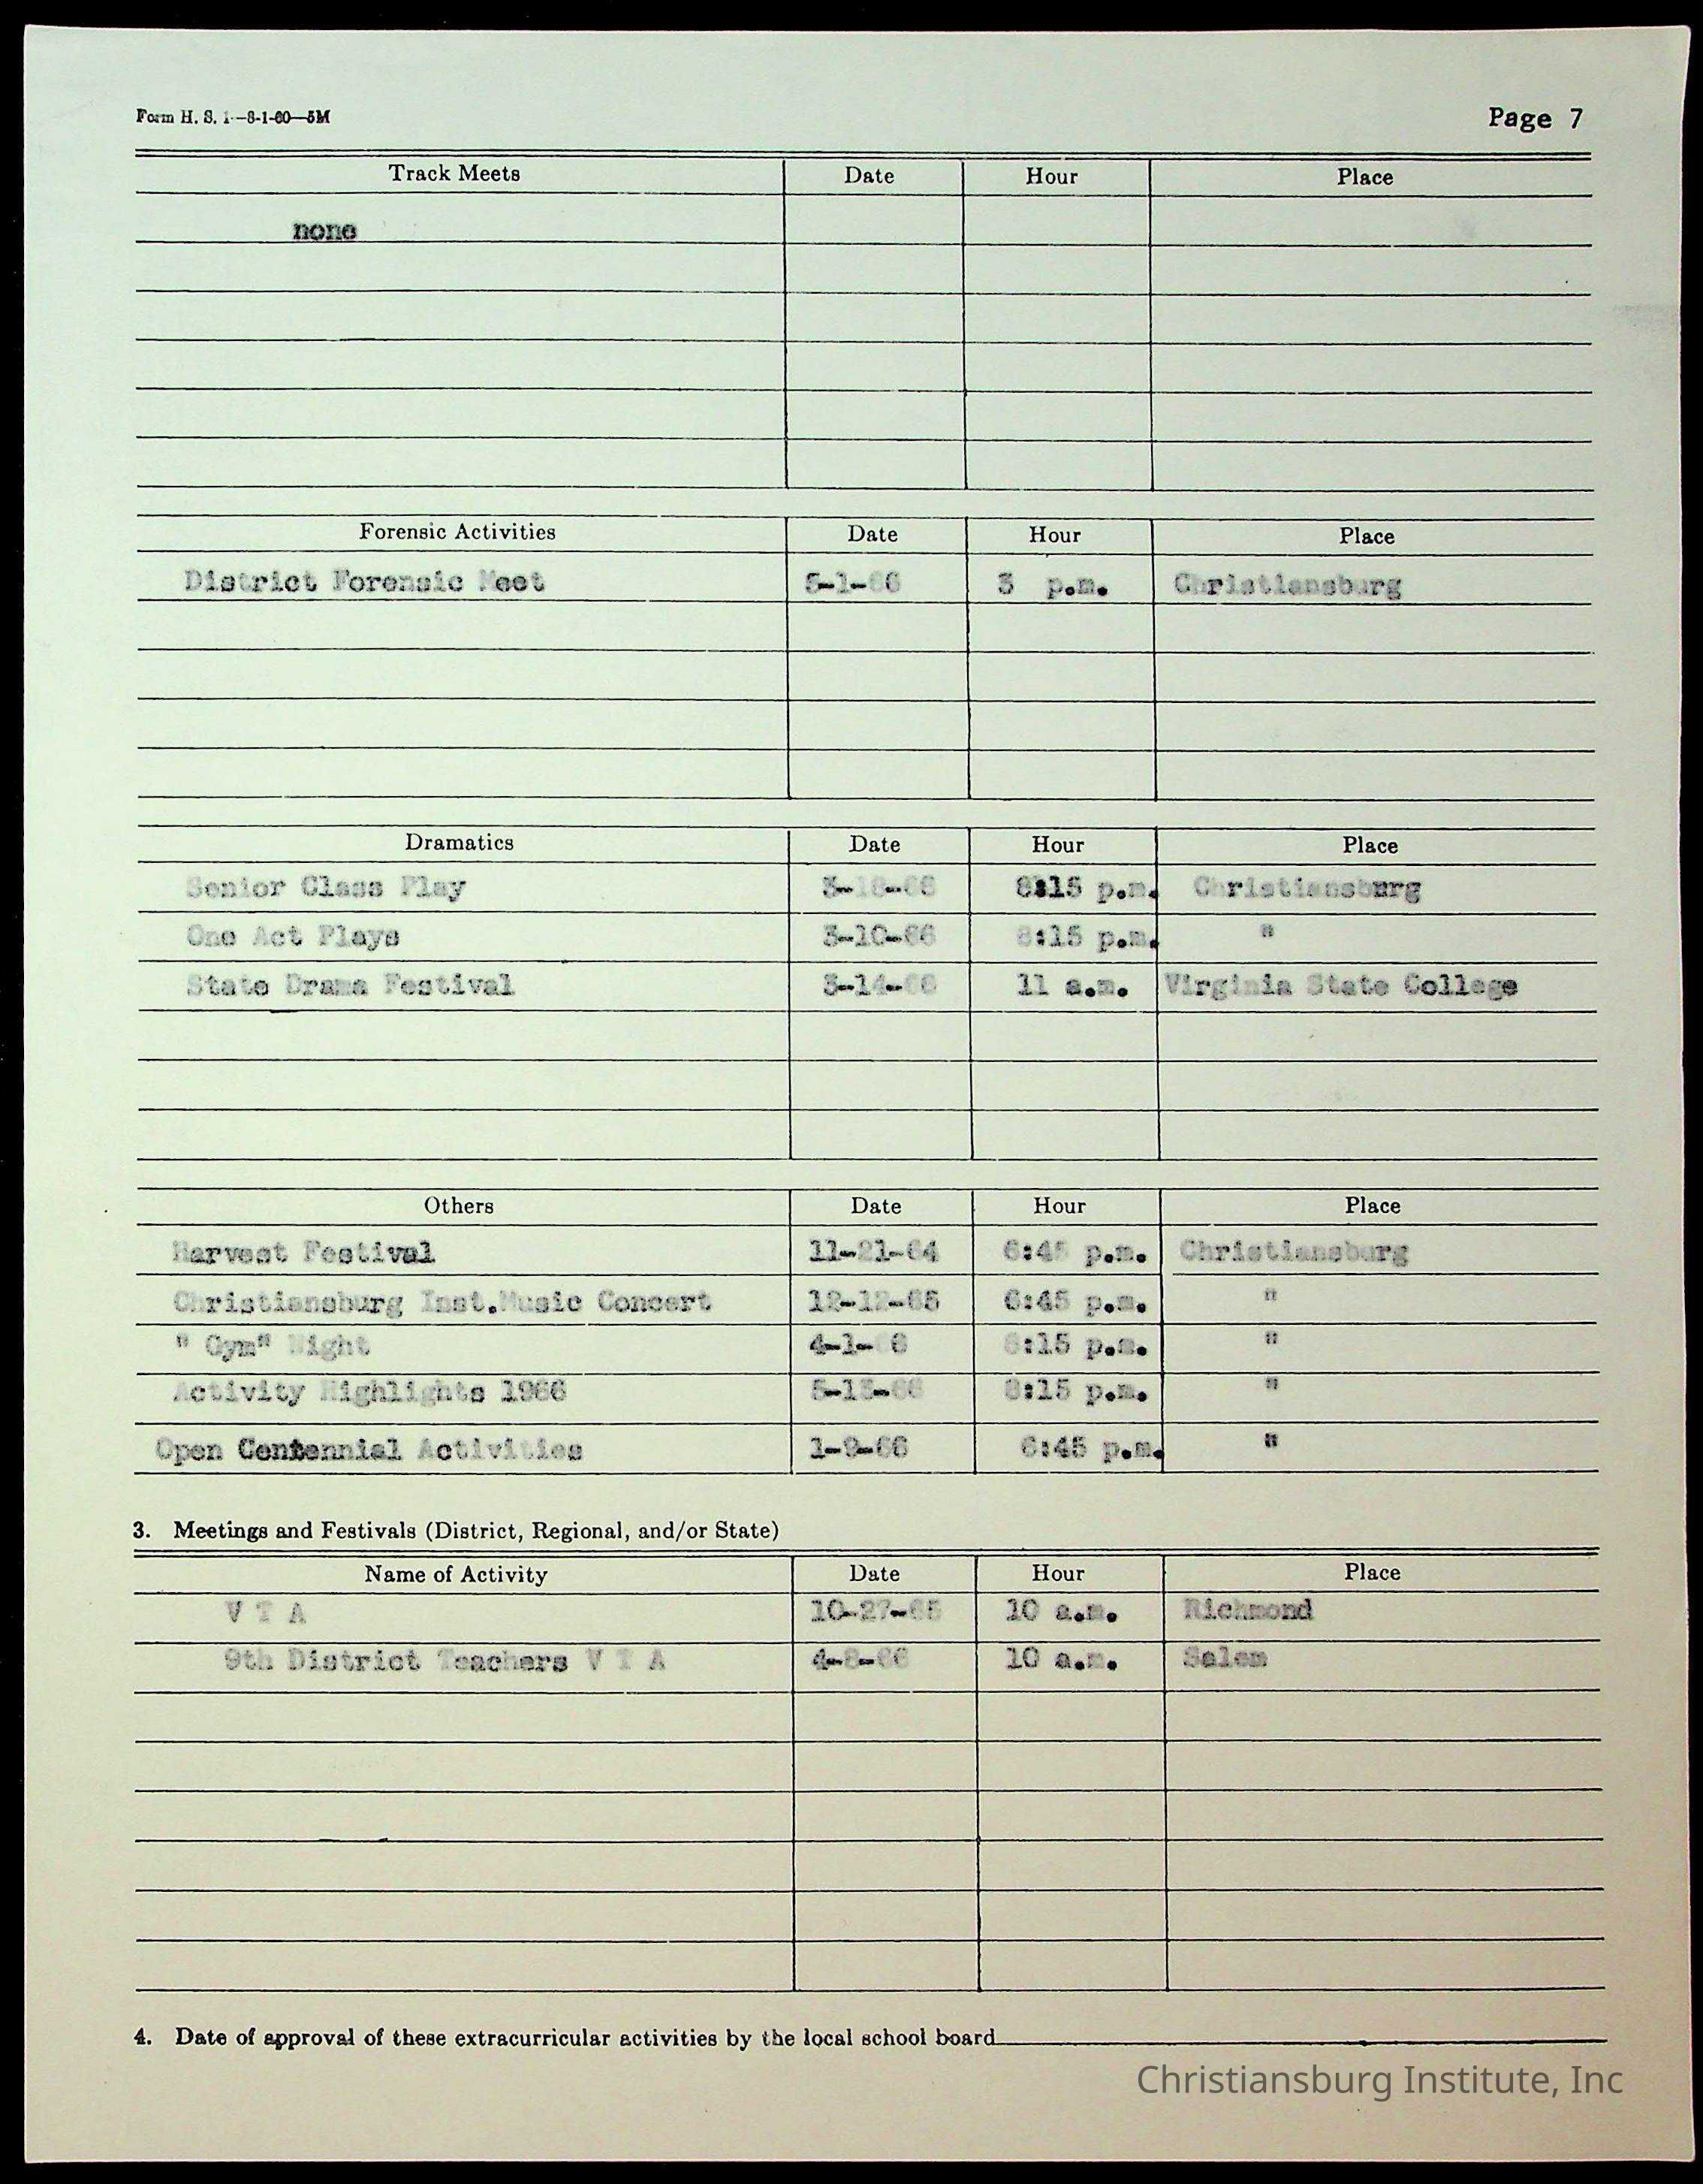 Form H. S. 1—8-1-60—5M Page 7
Track Meets Date Hour Place
none
Forensic Activities Date Hour Place
District Forensic Meet 5-1-66 3 p.m. Christiansburg
Dramatics Date Hour Place
Senior Class Play 3-18-66 8:15 p.m. Christiansburg
One Act Plays 3-10-66 8:15 p.m. "
State Drama Festival 3-14-66 11 a.m. Virginia State College
Others Date Hour Place
Harvest Festival 11-21-64 6:45 p.m. Christiansburg
Christiansburg Inst.Music Concert 12-12-65 6:45 p.m. "
" Gym" Night 4-1-66 8:15 p.m. "
Activity Highlights 1966 8:15 p.m. "
Open Centennial Activities 1-9-66 6:45 p.m. "
3. Meetings and Festivals (District, Regional, and/or State)
Name of Activity Date Hour Place
V T A 10-27-65 10 a.m. Richmond
9th District Teachers V T A 4-8-66 10 a.m. Salem
4. Date of approval of these extracurricular activities by the local school board
Christiansburg Institute, Inc